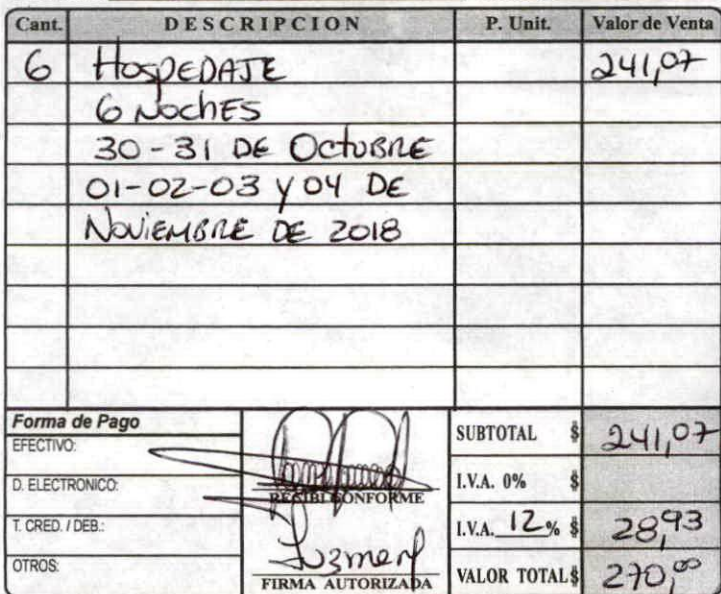 Cant. DESCRIPCION P. Unit. Valor de Venta
6 HOSPEDAJE 241,07
6 NOCHES
30-31 DE OCTUBRE
01-02-03 Y 04 DE
NOVIEMBRE DE 2018
Forma de Pago
EFECTIVO:
D. ELECTRONICO:
T. CRED. / DEB.:
OTROS:
RECIBI CONFORME
Luzmery
FIRMA AUTORIZADA
SUBTOTAL $ 241,07
I.V.A. 0% $
I.V.A. 12% $ 28,93
VALOR TOTAL $ 270,00